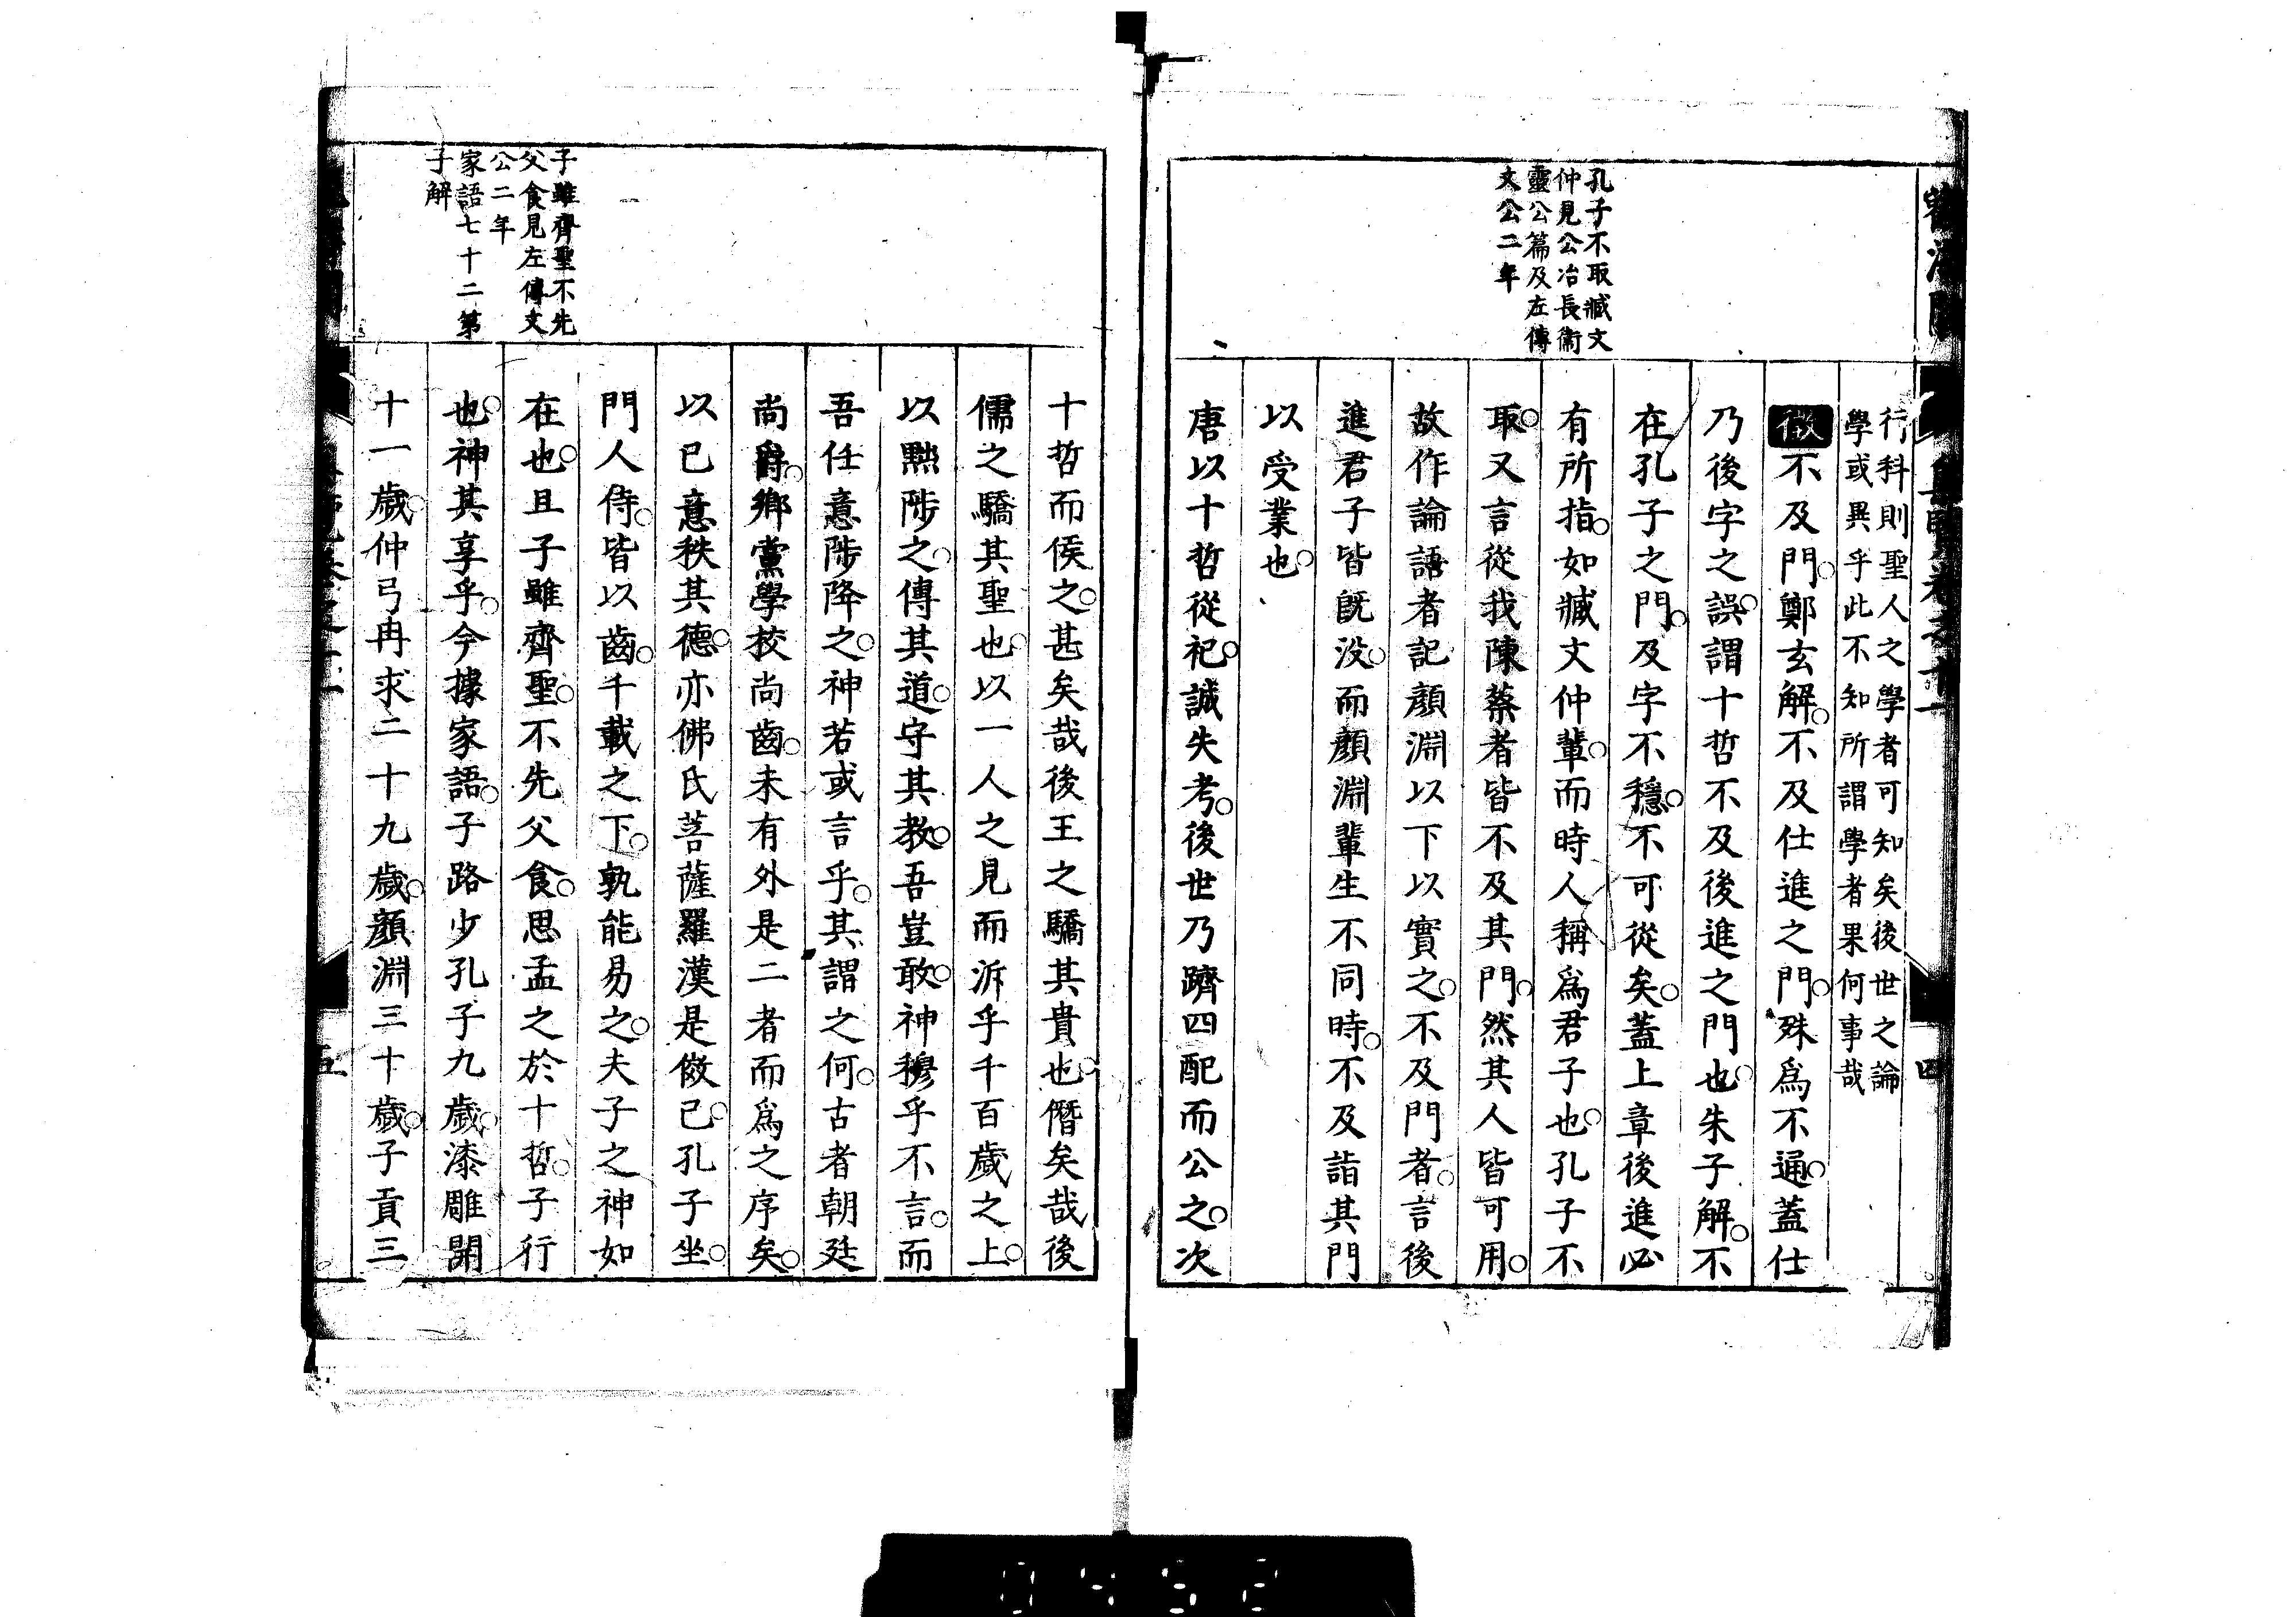 孔子不取臧文
仲見公冶長衞
靈公篇及左傳
文公二年
行科則聖人之學者可知矣後世之論
學或異乎此不知所謂學者果何事哉
徵不及門。鄭玄解。不及仕進之門。殊爲不通。蓋仕
乃後字之誤。謂十哲不及後進之門也。朱子解。不
在孔子之門。及字不穩。不可從矣。蓋上章後進必
有所指。如臧文仲輩。而時人稱爲君子也。孔子不
取。又言從我陳蔡者皆不及其門。然其人皆可用。
故作論語者記顔淵以下以實之。不及門者。言後
進君子皆旣没。而顔淵輩生不同時。不及詣其門
以受業也。
唐以十哲從祀。誠失考。後世乃躋四配而公之。次
四
子雖齊聖不先
父食見左傳文
公二年
家語七十二第
子解
十哲而侯之。甚矣哉後王之驕其貴也。僭矣哉後
儒之驕其聖也。以一人之見而泝乎千百歲之上。
以黜陟之。傳其道。守其教。吾豈敢。神穆乎不言。而
吾任意陟降之。神若或言乎。其謂之何。古者朝廷
尚爵。鄉黨學校尚齒。未有外是二者而爲之序矣。
以已意秩其德。亦佛氏菩薩羅漢是傚已。孔子坐。
門人侍。皆以齒。千載之下。孰能易之。夫子之神如
在也。且子雖齊聖。不先父食。思孟之於十哲。子行
也。神其享乎。今據家語。子路少孔子九歲。漆雕開
十一歲。仲弓冉求二十九歲。顔淵三十歲。子貢三
五
0452